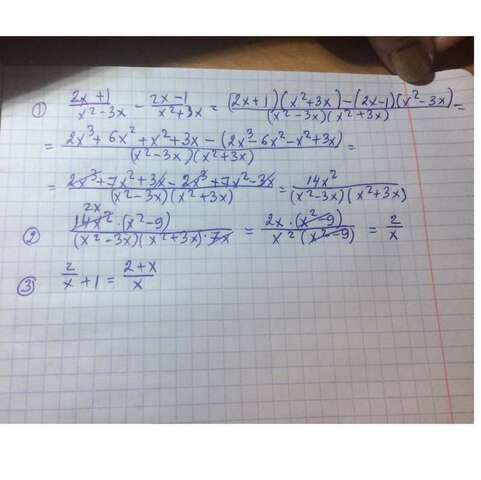 ① (2x+1)/(x²-3x) - (2x-1)/(x²+3x) = ((2x+1)(x²+3x)-(2x-1)(x²-3x))/((x²-3x)(x²+3x)) =
= (2x³+6x²+x²+3x-(2x³-6x²-x²+3x))/((x²-3x)(x²+3x)) =
= (2x³+7x²+3x-2x³+7x²-3x)/((x²-3x)(x²+3x)) = 14x²/((x²-3x)(x²+3x))
2x
② (14x²·(x²-9))/((x²-3x)(x²+3x)·7x) = (2x·(x²-9))/(x²(x²-9)) = 2/x
③ 2/x+1 = (2+x)/x